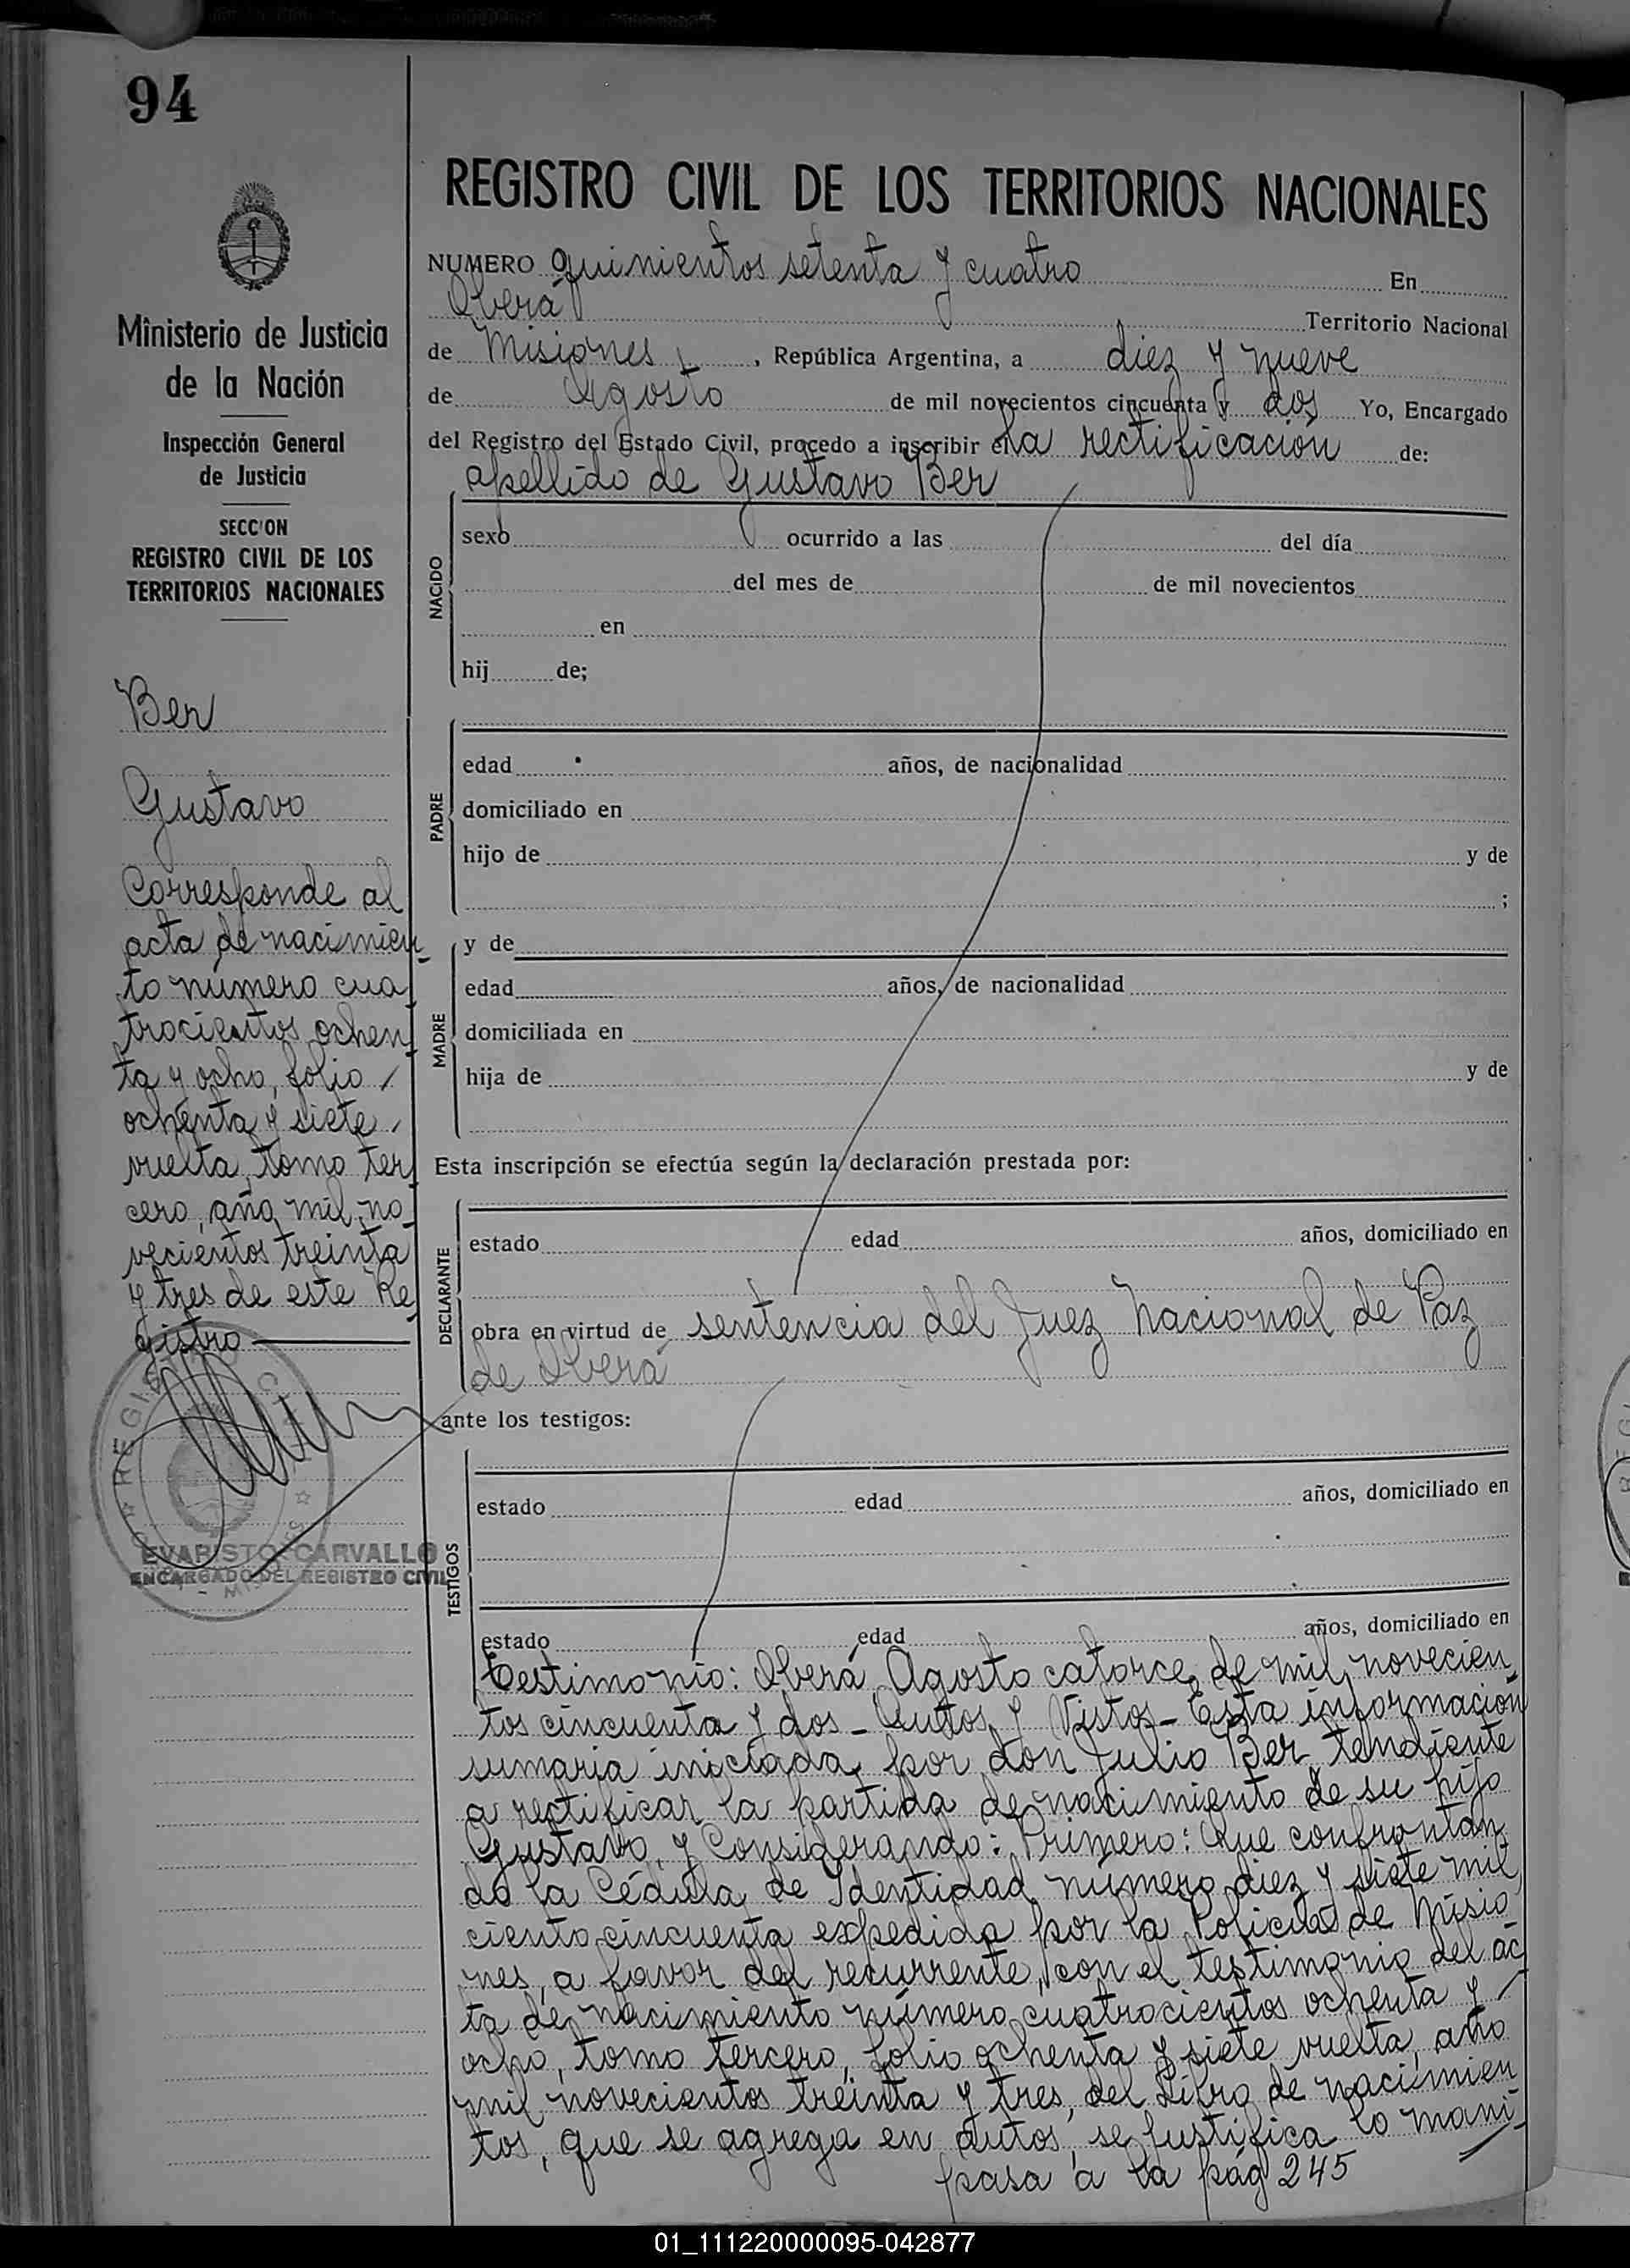 94
Ministerio de Justicia
de la Nación
Inspección General
de Justicia
SECCION
REGISTRO CIVIL DE LOS
TERRITORIOS NACIONALES
Ber
Gustavo
Corresponde al
acta de nacimien
to número cua
trocientos ochen
ta y ocho, folio /
ochenta y siete /
vuelta, tomo ter
cero, año mil no
vecientos treinta
y tres de este Re
gistro
EVARISTO CARVALLO
ENCARGADO DEL REGISTRO CIVIL
REGISTRO CIVIL DE LOS TERRITORIOS NACIONALES
NUMERO quinientos setenta y cuatro En
Oberá Territorio Nacional
de Misiones, República Argentina, a diez y nueve
de Agosto de mil novecientos cincuenta y dos Yo, Encargado
del Registro del Estado Civil, procedo a inscribir el la rectificación de:
apellido de Gustavo Ber
NACIDO
sexo ocurrido a las del día
del mes de de mil novecientos
en
hij de;
PADRE
edad años, de nacionalidad
domiciliado en
hijo de y de
;
MADRE
y de
edad años, de nacionalidad
domiciliada en
hija de y de
Esta inscripción se efectúa según la declaración prestada por:
DECLARANTE
estado edad años, domiciliado en
obra en virtud de sentencia del Juez Nacional de Paz
de Oberá
ante los testigos:
TESTIGOS
estado edad años, domiciliado en
estado edad años, domiciliado en
Testimonio: Oberá Agosto catorce de mil novecien
tos cincuenta y dos - Autos y Vistos - Esta información
sumaria iniciada por don Julio Ber tendiente
a rectificar la partida de nacimiento de su hijo
Gustavo, y Considerando: Primero: Que confrontan
do la Cédula de Identidad número diez y siete mil
ciento cincuenta expedida por la Policía de Misio
nes, a favor del recurrente, con el testimonio del ac
ta de nacimiento número cuatrocientos ochenta y /
ocho, tomo tercero, folio ochenta y siete vuelta, año
mil novecientos treinta y tres, del Libro de nacimien
tos, que se agrega en autos, se justifica lo mani
pasa a la pág 245
01_111220000095-042877